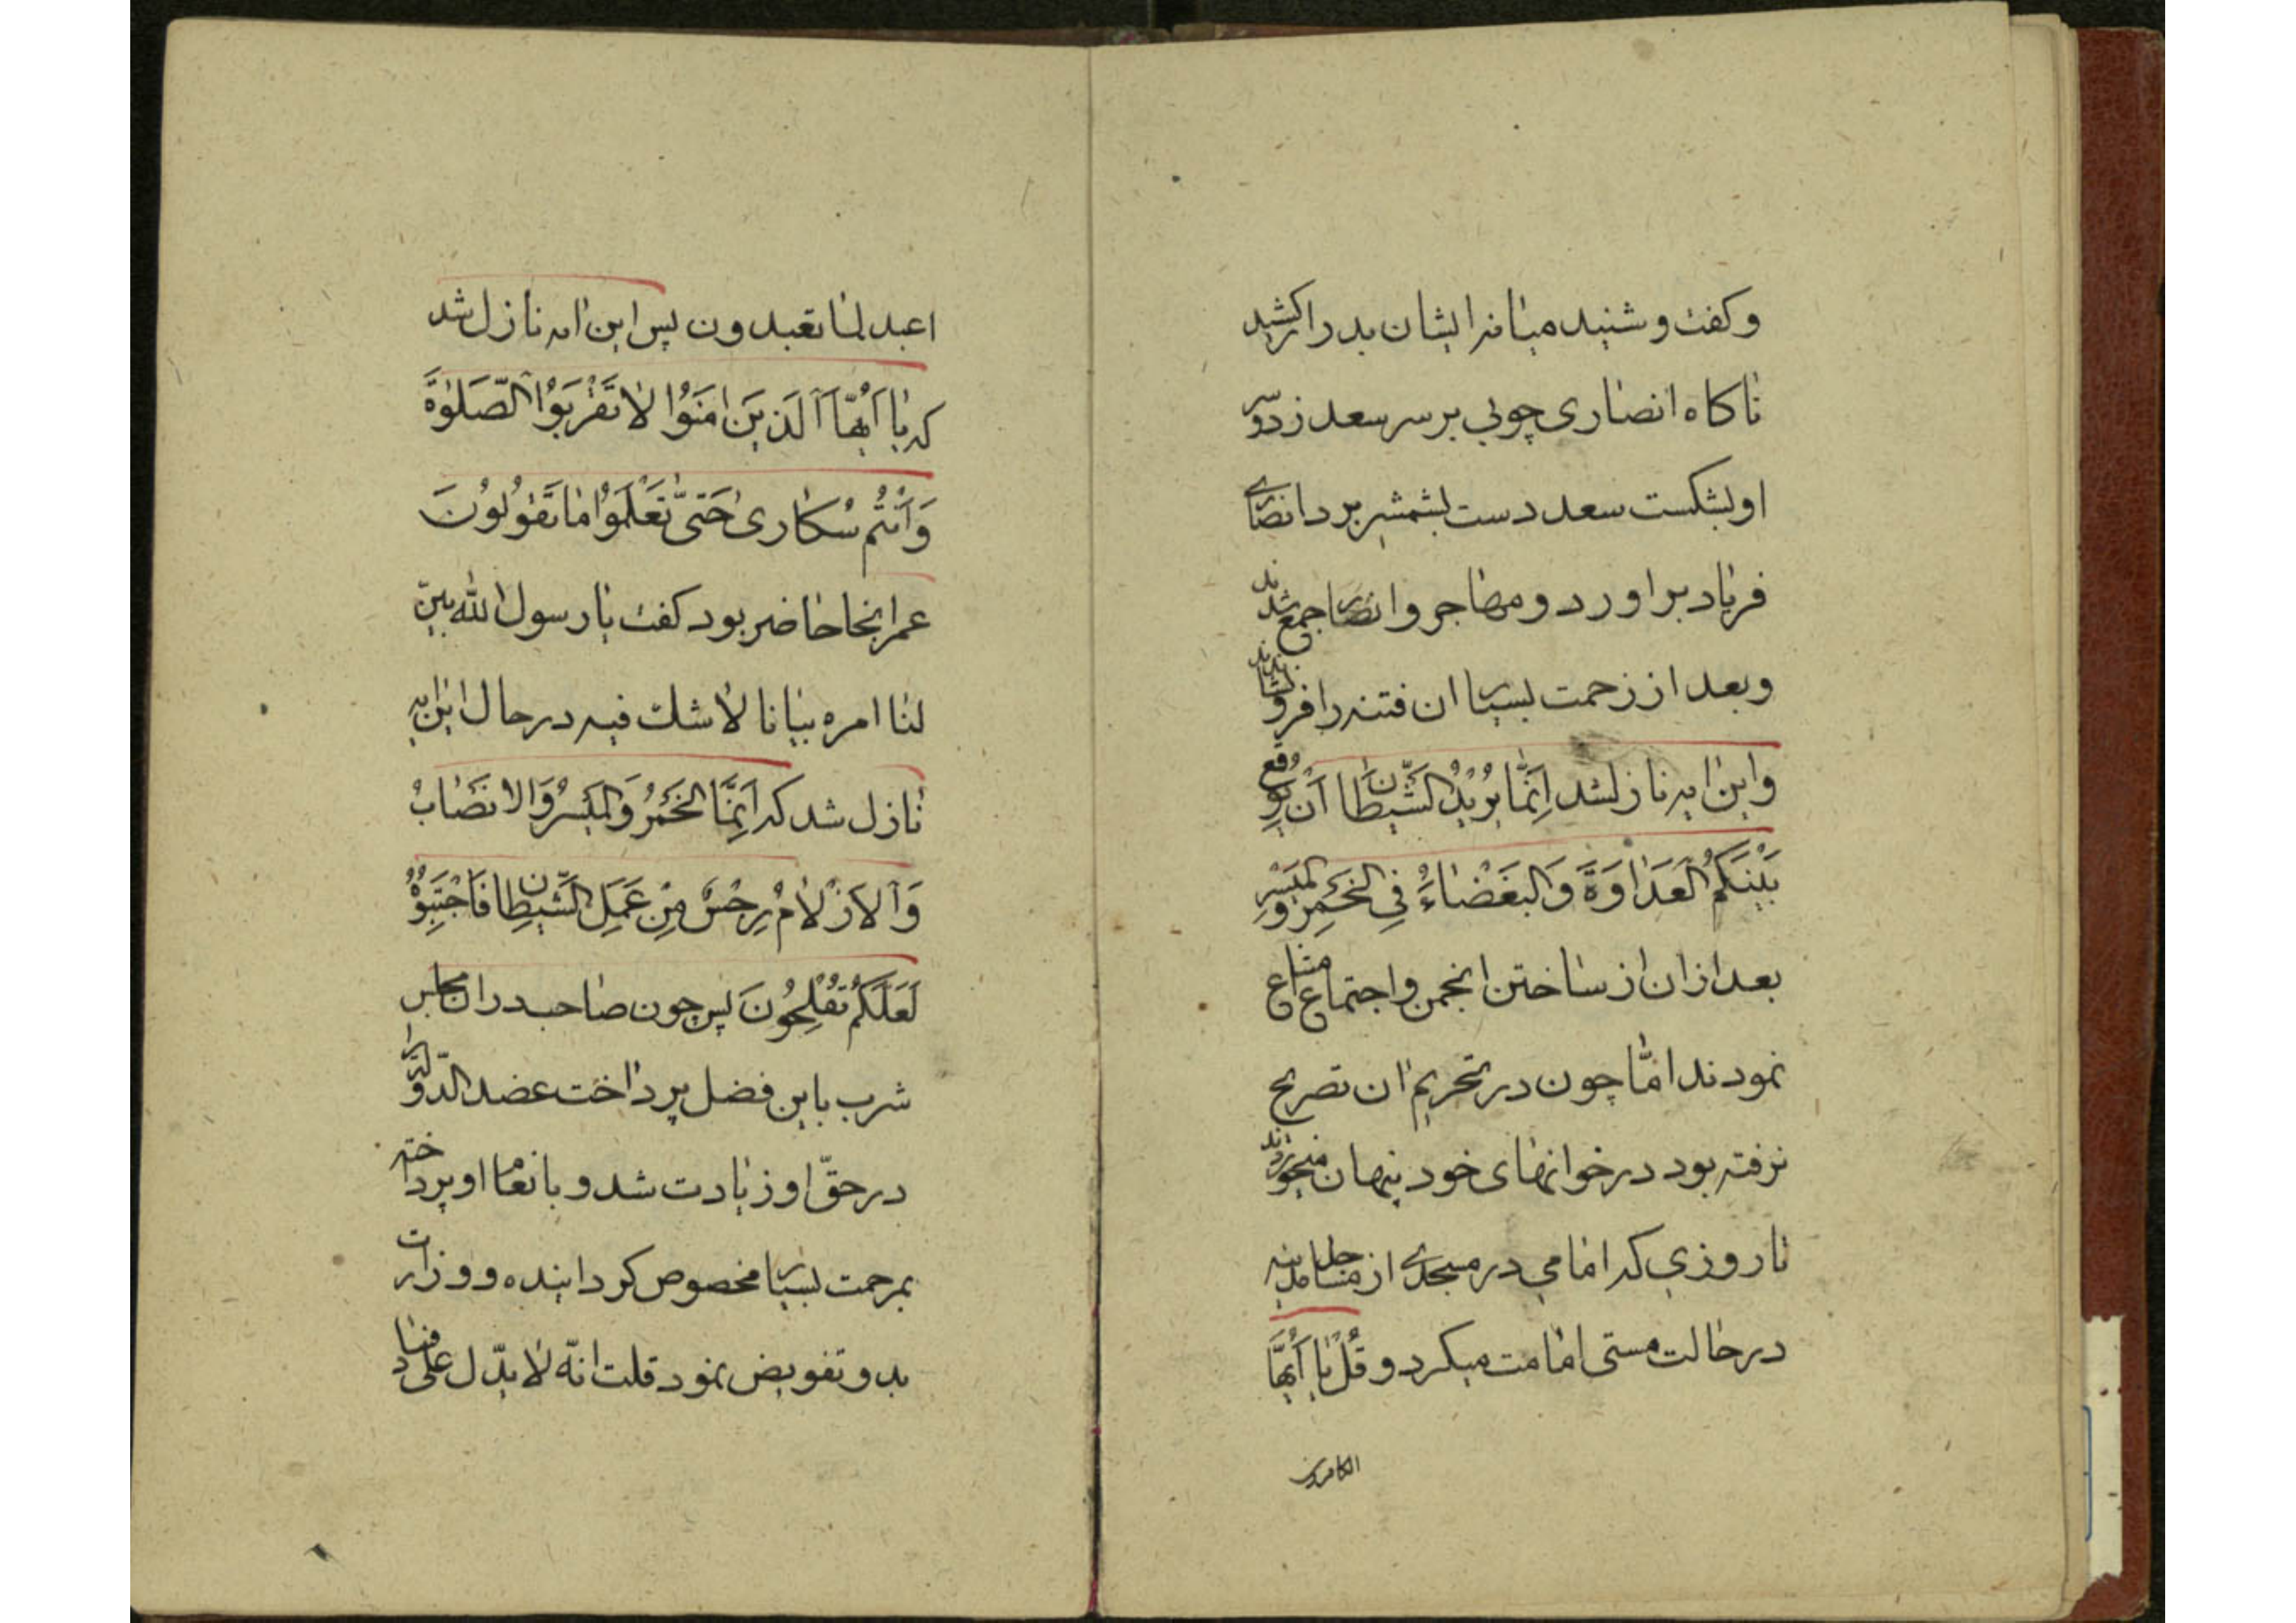 و کفت و شنید میانه ایشان بدراز کشید
ناکاه انصاری چوبی بر سر سعد زد و سر
او بشکست سعد دست بشمشیر برد انصاری
فریاد براورد و مهاجر و انصار جمع شدند
و بعد از زحمت بسیار ان فتنه را فرو نشاندند
و این ایه نازل شد اِنَّمٰا یُرٖیدُ الشَّیْطٰانُ اَنْ یُوقِعَ
بَیْنَکُمُ الْعَدٰاوَةَ وَ الْبَغْضٰاءَ فِی الْخَمْرِ وَ الْمَیْسِرِ
بعد ازان از ساختن انجمن و اجتماع امتناع
نمودند امّا چون در تحریم ان تصریح
نرفته بود در خوانهای خود پنهان میخوردند
تا روزی که امامی در مسجدی از مساجد مدینه
در حالت مستی امامت میکرد و قُلْ یٰا اَیُّهَا
الکافرون
اعبد لما تعبدون پس این ایه نازل شد
که یٰا اَیُّهَا الَّذٖینَ اٰمَنُوا لٰا تَقْرَبُوا الصَّلٰوةَ
وَ اَنْتُمْ سُکٰارٰی حَتّٰی تَعْلَمُوا مٰا تَقُولُونَ
عمر انجا حاضر بود کفت یا رسول الله بیّن
لنا امره بیانا لا شک فیه در حال این ایه
نازل شد که اِنَّمَا الْخَمْرُ وَ الْمَیْسِرُ وَ الْاَنْصٰابُ
وَ الْاَزْلٰامُ رِجْسٌ مِنْ عَمَلِ الشَّیْطٰانِ فَاجْتَنِبُوهُ
لَعَلَّکُمْ تُفْلِحُونَ پس چون صاحب دران مجلس
شرب باین فضل پرداخت عضد الدّوله را
در حقّ او زیادت شد و بانعام او پرداخته
بمرحمت بسیار مخصوص کردانیده و وزارت
بدو تفویض نمود قلت انّه لا یدّل علی فساد